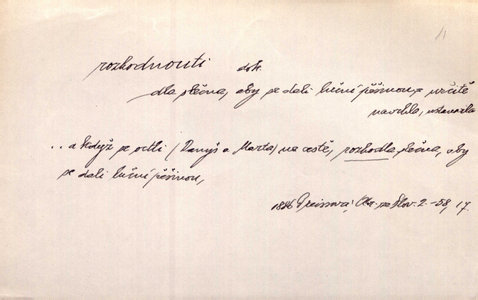 rozhodnouti dok.
dla slečna, aby se dali luční pěšinou = určitě
navrhla, ustanovila
.. a když se octli (Donyš a Marta) na cestě, rozhodla slečna, aby
se dali luční pěšinou,
1886 Preissová, Obr. ze Slov. 2-58, 17.